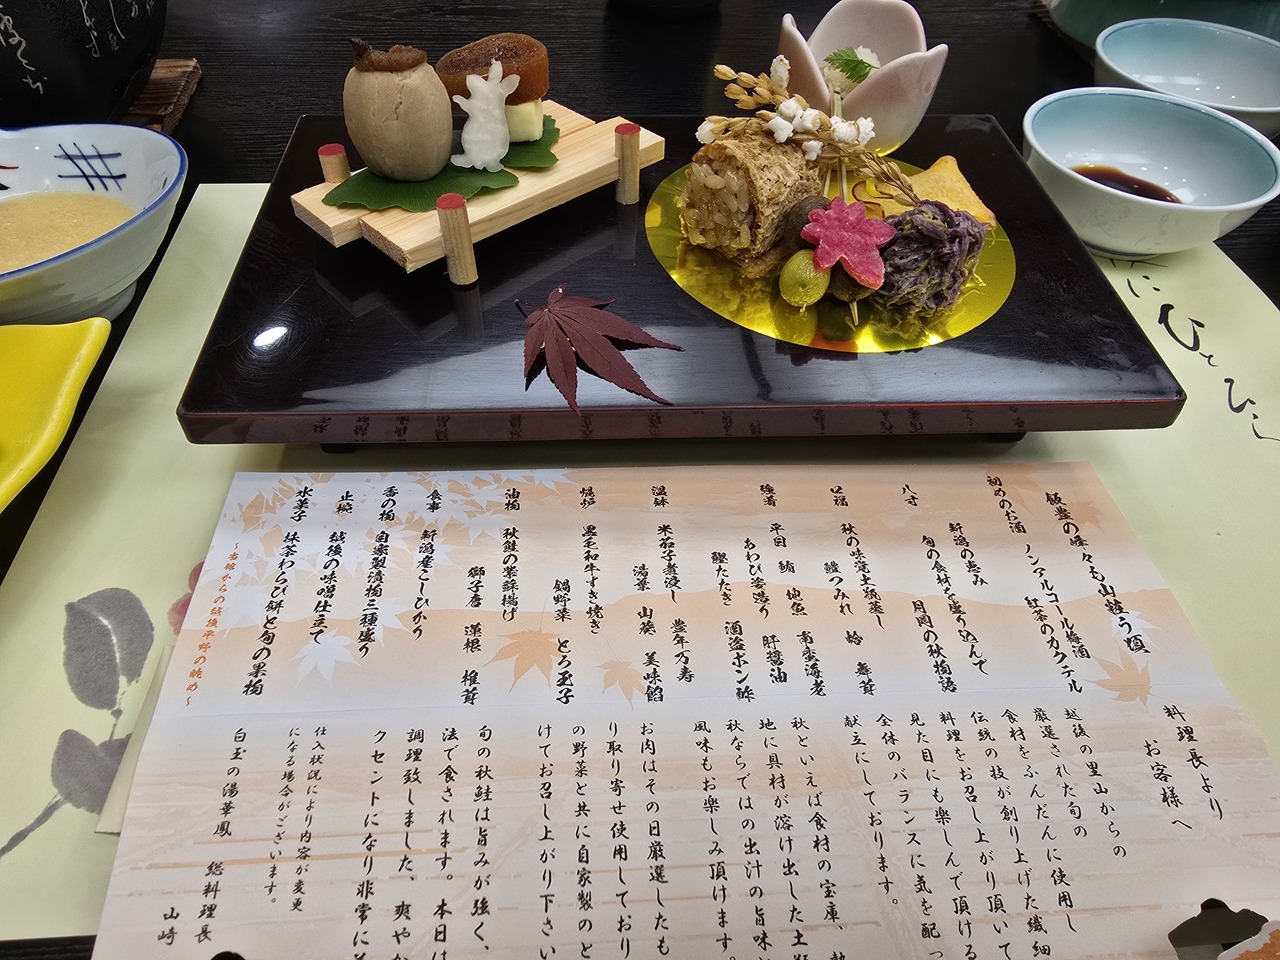 飯豊の峰々も山粧う頃
初めのお酒 ノンアルコール梅酒
紅茶のカクテル
新潟の恵み
八寸 旬の食材を盛り込んで
月岡の秋物語
口福 秋の味覚土瓶蒸し
鱧つみれ 蛤 舞茸
強肴 平目 鮪 地魚 南蛮海老
あわび姿造り 肝醤油
鰹たたき 酒盗ポン酢
温鉢 米茄子煮浸し 豊年万寿
湯葉 山葵 美味餡
焜炉 黒毛和牛すき焼き
鍋野菜 とろ玉子
油物 秋鮭の紫蘇揚げ
獅子唐 蓮根 椎茸
食事 新潟産こしひかり
香の物 自家製漬物三種盛り
止椀 越後の味噌仕立て
水菓子 抹茶わらび餅と旬の果物
~当館からの越後平野の眺め~
料理長より
お客様へ
越後の里山からの
厳選された旬の
食材をふんだんに使用し
伝統の技が創り上げた繊細
料理をお召し上がり頂いて
見た目にも楽しんで頂ける
全体のバランスに気を配っ
献立にしております。
秋といえば食材の宝庫、
地に具材が溶け出した土瓶
秋ならではの出汁の旨味
風味もお楽しみ頂けます。
お肉はその日厳選したも
り取り寄せ使用しており
の野菜と共に自家製のと
けてお召し上がり下さい
旬の秋鮭は旨みが強く、
法で食されます。本日は
調理致しました、爽やか
クセントになり非常に
仕入状況により内容が変更
になる場合がございます。
白玉の湯華鳳 総料理長
山崎